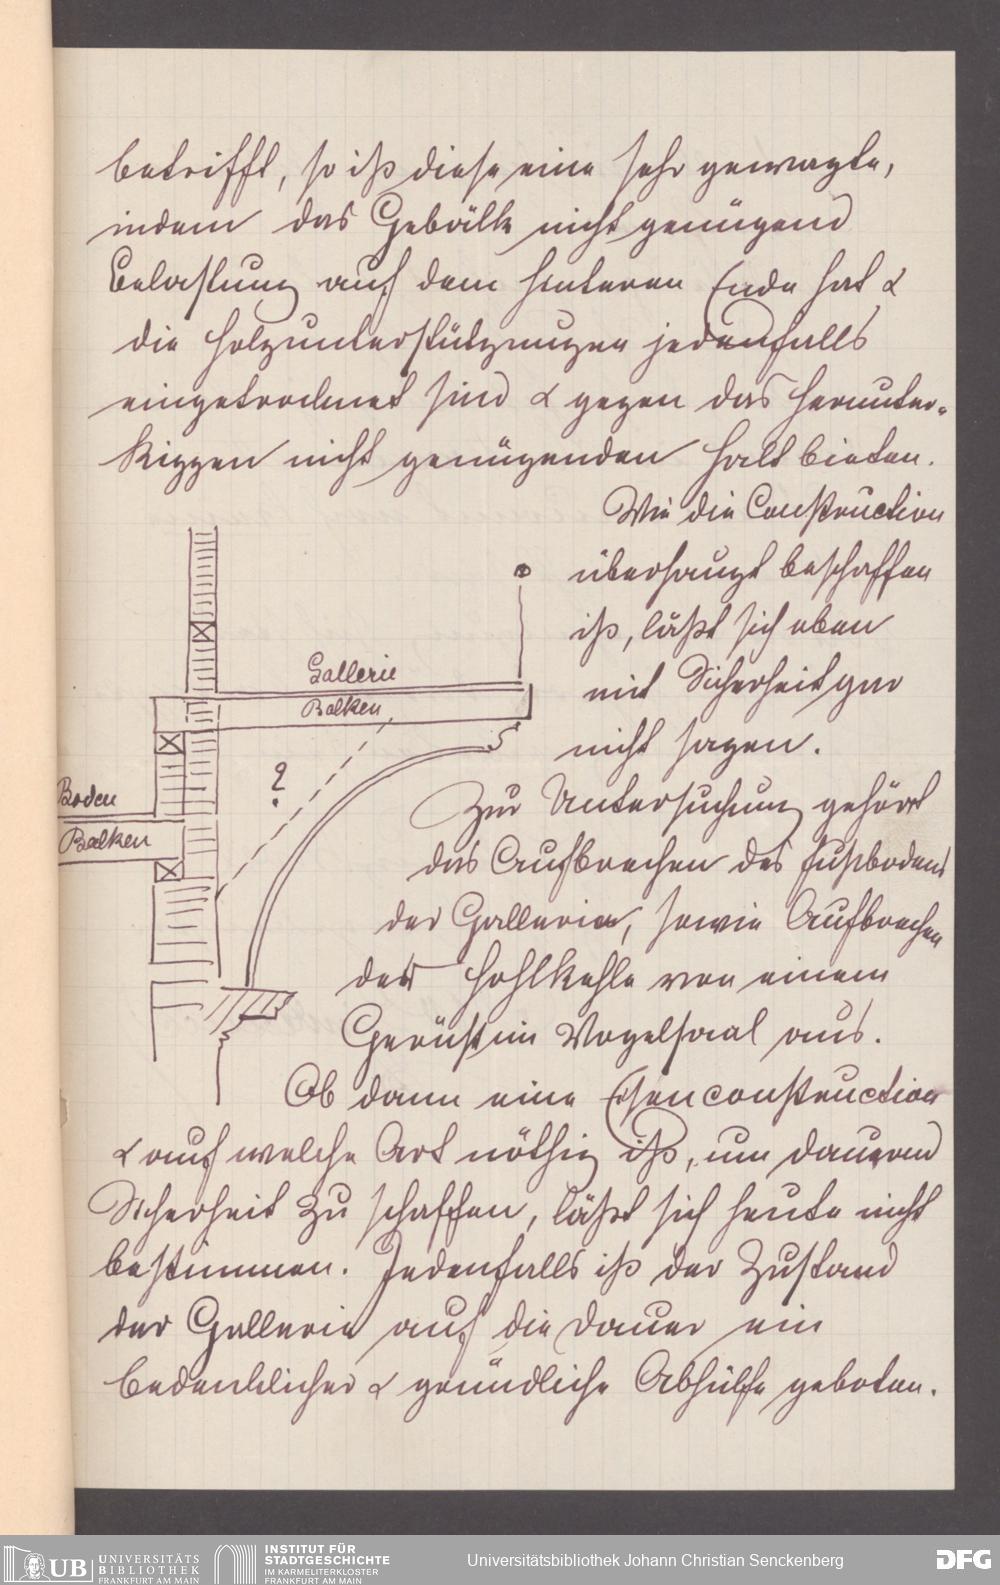 betrifft, so ist diese eine sehr gewagte,
indem das Gebälk nicht genügend
Belastung auf dem hinteren Ende hat &
die Holzunterstützungen jedenfalls
eingetrocknet sind & gegen das Herunter-
kippen nicht genügenden Halt bieten.
Wie die Construction
überhaupt beschaffen
ist, läßt sich eben
mit Sicherheit gar
nicht sagen.
Gallerie
Balken
?
Boden
Balken
Zur Untersuchung gehört
das Aufbrechen des Fußbodens
der Gallerie, sowie Aufbrechen
der Hohlkehle von einem
Gerüst im Vogelsaal aus.
Ob dann eine Eisenconstruction
& auf welche Art nöthig ist, um dauernd
Sicherheit zu schaffen, läßt sich heute nicht
bestimmen. Jedenfalls ist der Zustand
der Gallerie auf die Dauer ein
bedenklicher & gründliche Abhülfe geboten.
UB UNIVERSITÄTS
BIBLIOTHEK
FRANKFURT AM MAIN
INSTITUT FÜR
STADTGESCHICHTE
IM KARMELITERKLOSTER
FRANKFURT AM MAIN
Universitätsbibliothek Johann Christian Senckenberg
DFG